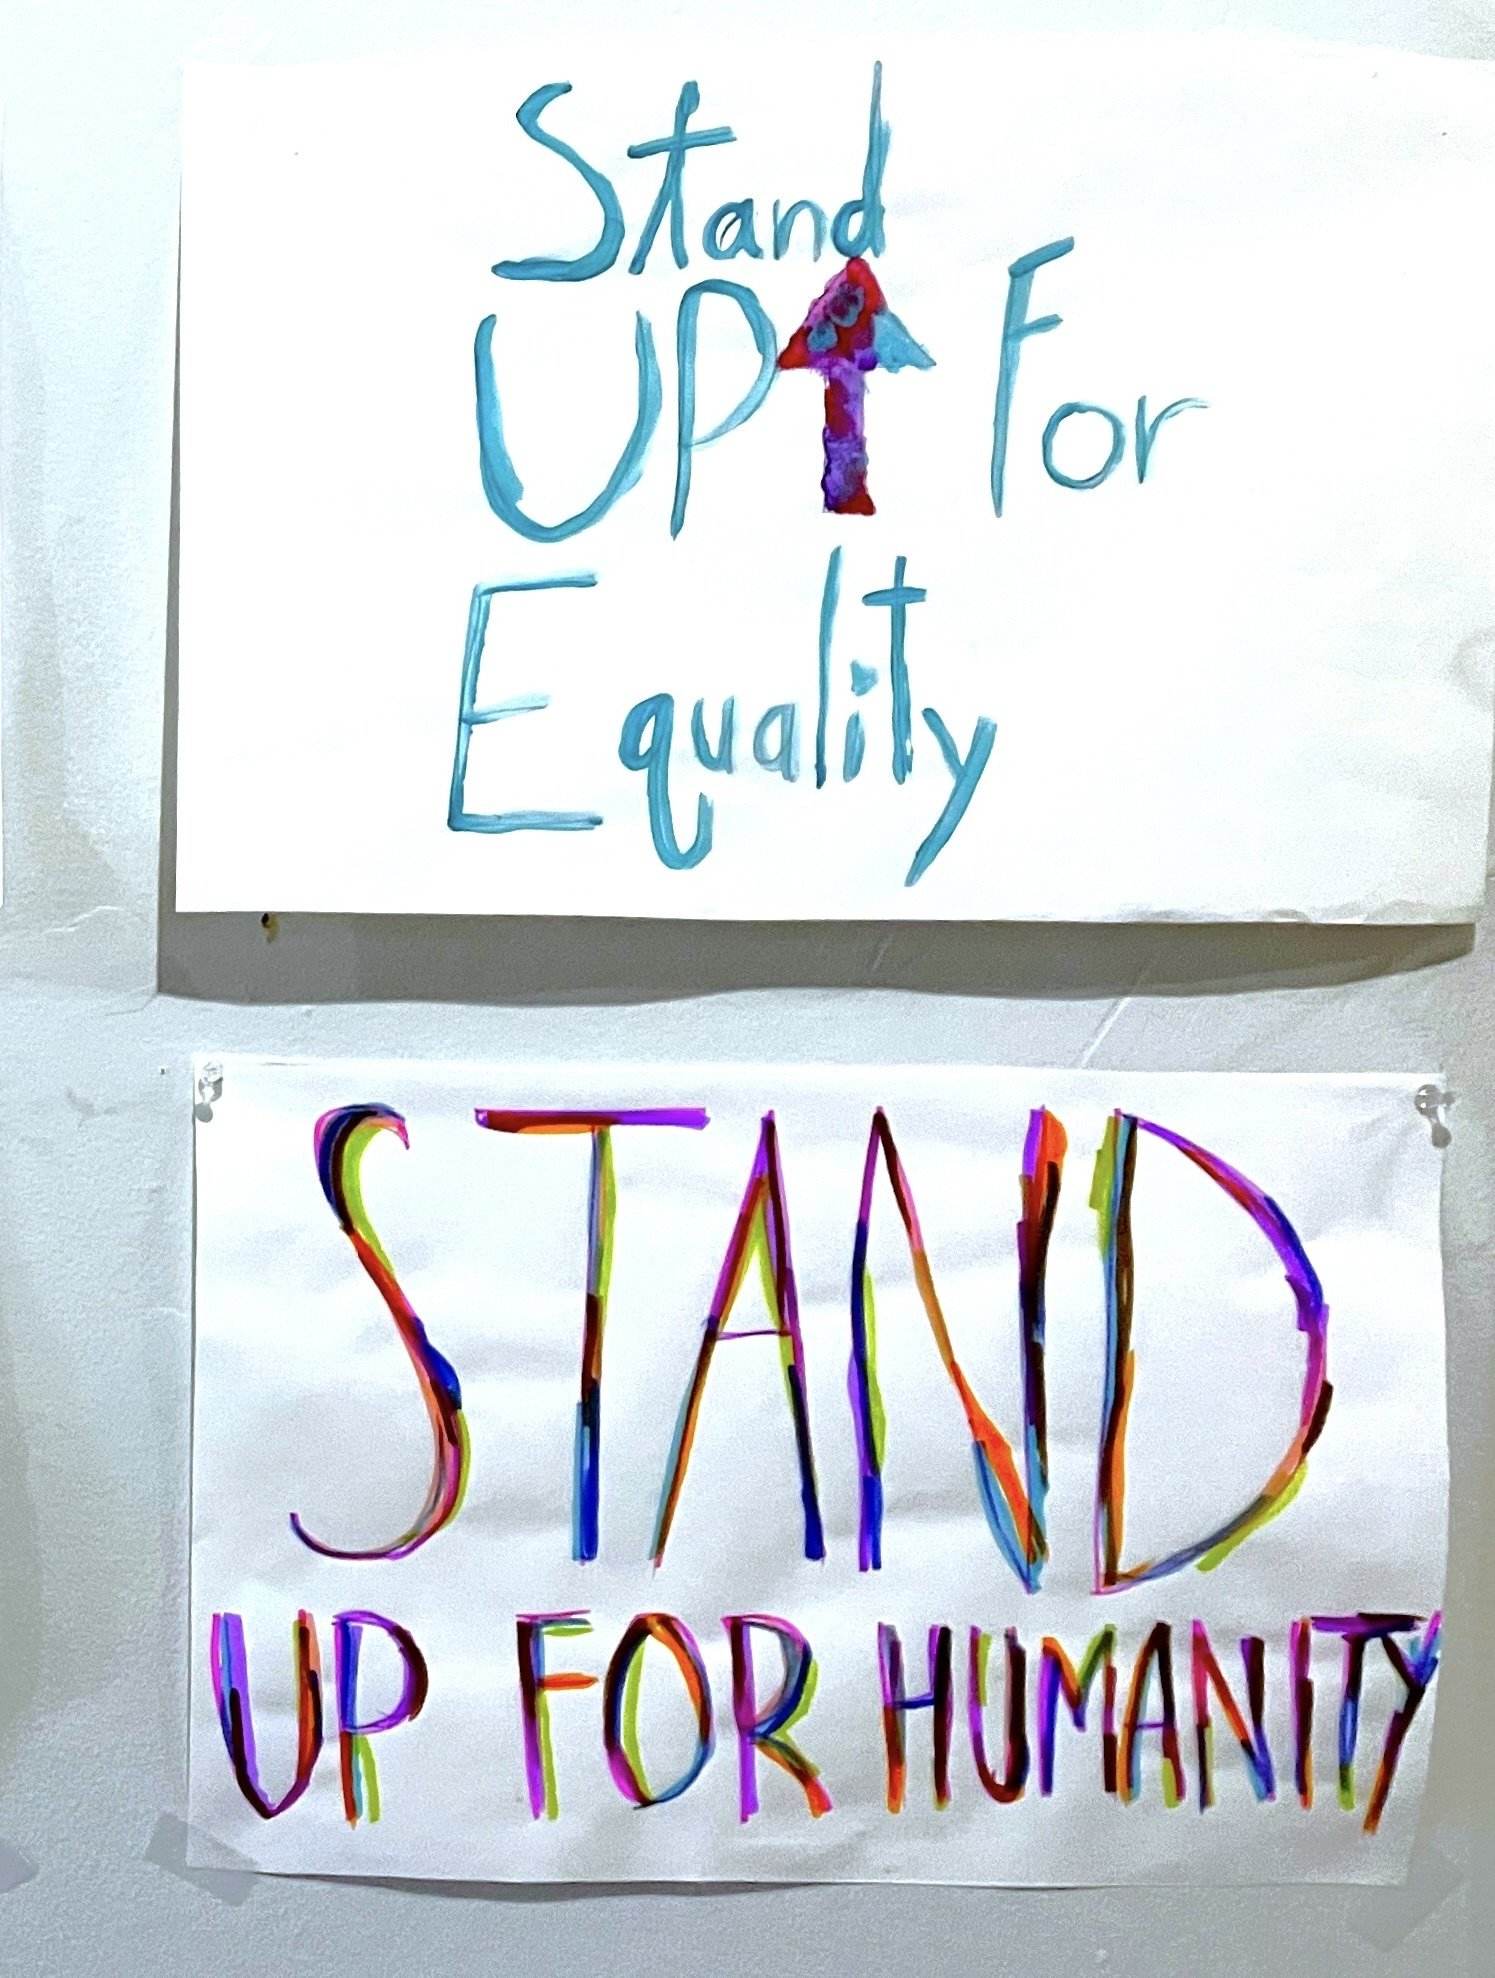 Stand
UP For
Equality
STAND
UP FOR HUMANITY